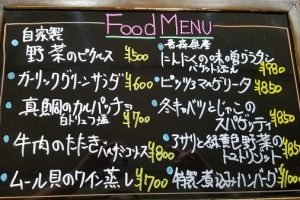 Food MENU
自家製
野菜のピクルス ¥500
ガーリックグリーンサラダ ¥600
真鯛のカルパッチョ
白トリュフ塩 ¥700
牛肉のたたき バルサミコソース ¥800
ムール貝のワイン蒸し ¥700
青森県産
にんにくの味噌グラタン
バケット ¥980
ピッツァマルゲリータ ¥850
冬キャベツとじゃこの
スパゲッティ ¥850
アサリと 野菜の
トマトリゾット ¥850
特製煮込みハンバーグ ¥1100